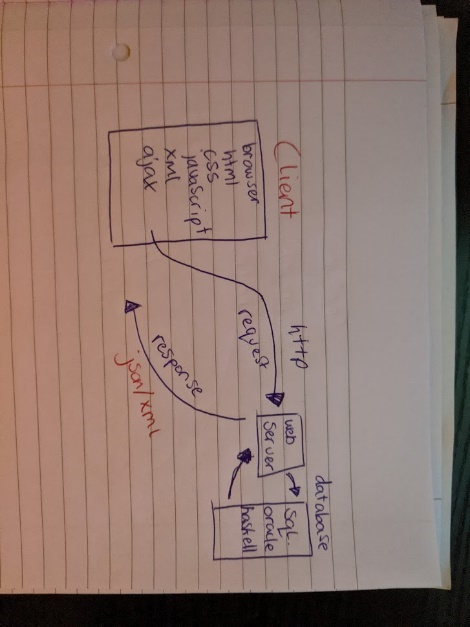 Client
browser
html
css
javascript
xml
ajax
http
request
response
json/xml
web
server
database
SQL
oracle
haskell